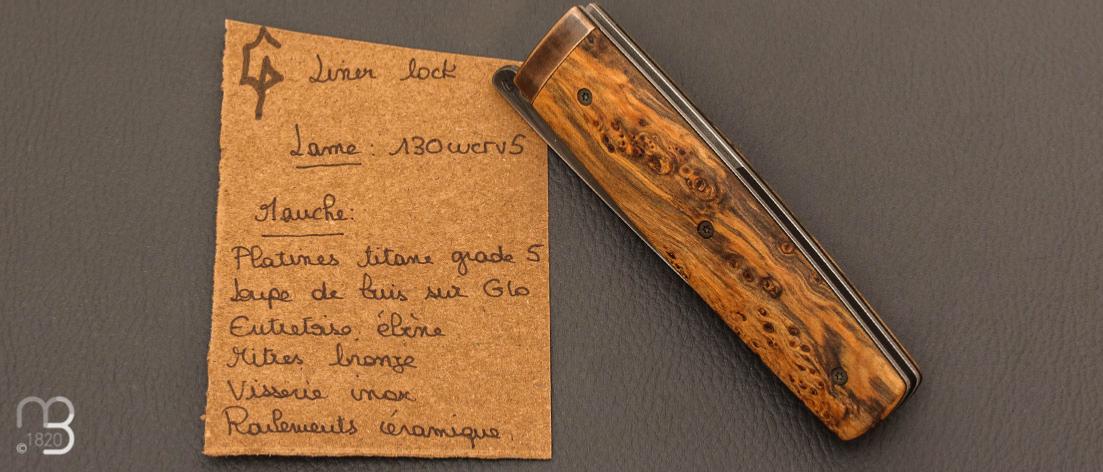 Liner lock
Lame: 130wcrv5
Manche:
Platines titane grade 5
Loupe de buis sur G10
Entretoise ébène
Mitres bronze
Visserie inox
Roulements céramique.
MB
©1820